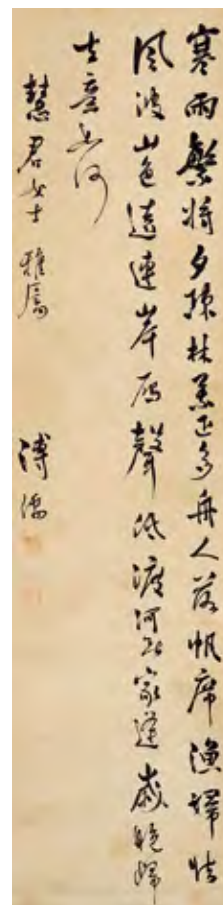 寒雨將夕疎林葉正多舟人落帆席漁婦怯
風波山色遠連岸雁聲低渡河家逢歲晚歸
去意如何
慧君女士雅屬
溥儒